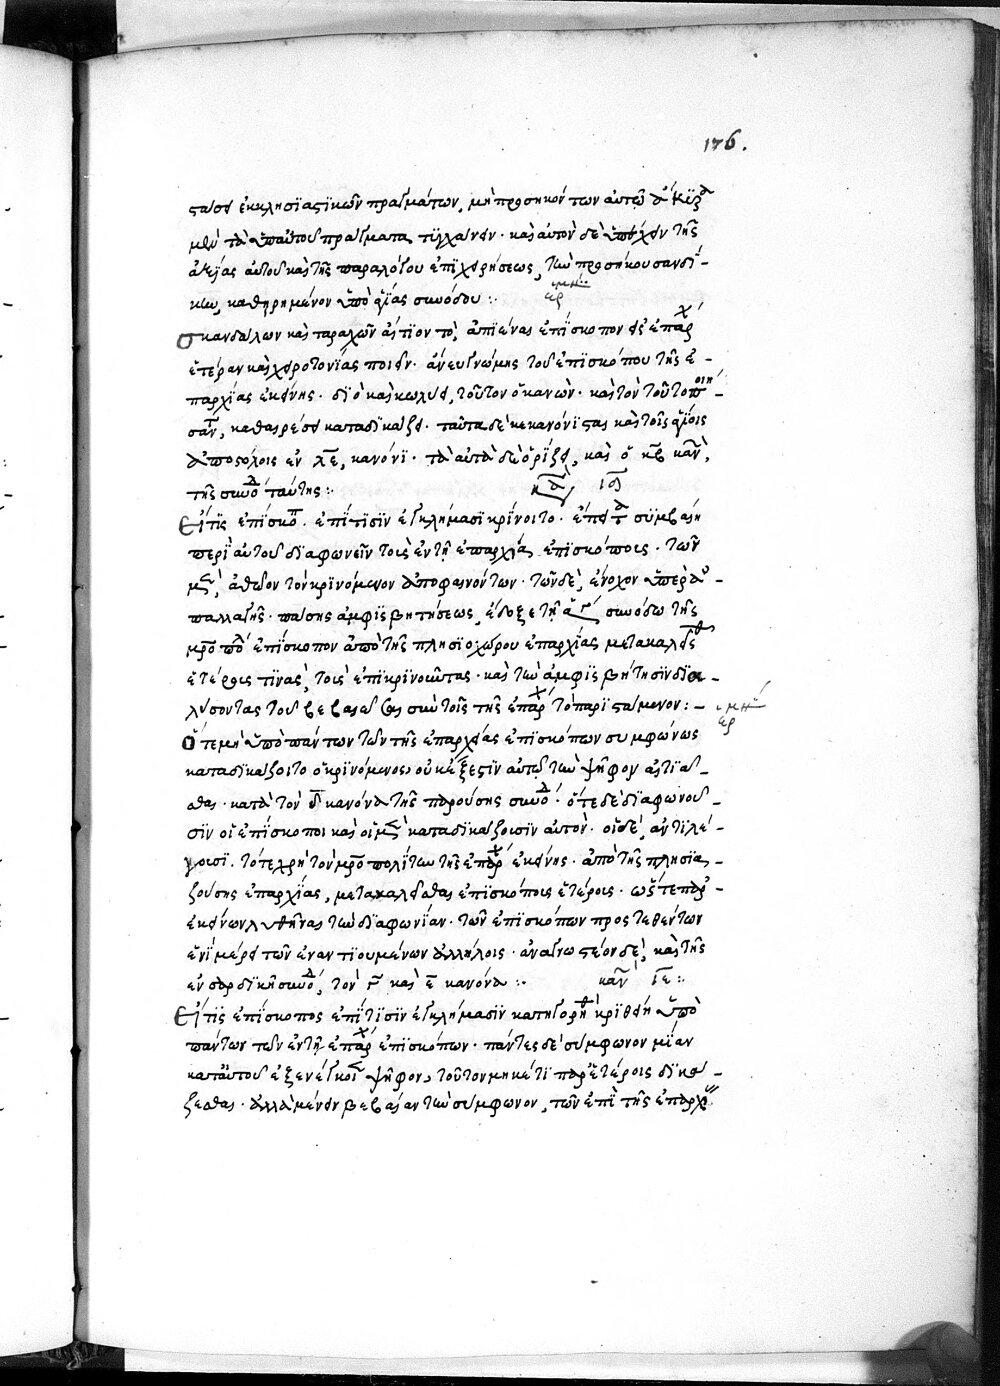 176.
στάσει ἐκκλησιαστικῶν πραγμάτων, μὴ προσηκόντων αὐτῷ ἀλλ
μὲν τὰ ὑπ' αὐτοῦ πραττόμενα τυγχάνειν· καὶ αὐτὸν δὲ ὑπέχειν τῆς
ἀταξίας αὐτοῦ καὶ τῆς παραλόγου ἐπιχειρήσεως, τὴν προσήκουσαν δί-
κην, καθῃρημένον ὑπὸ ἁγίας συνόδου :·
ἑρμη
σκανδάλων καὶ ταραχῶν αἴτιον τὸ, ἀπιέναι ἐπίσκοπον εἰς ἐπαρχ
ἑτέραν καὶ χειροτονίας ποιεῖν· ἄνευ γνώμης τοῦ ἐπισκόπου τῆς ἐ-
παρχίας ἐκείνης· διὸ καὶ κωλύει, τοῦτον ὁ κανών· καὶ τὸν τοῦτο ποιή-
σαντ, καθαιρέσει καταδικάζει· ταῦτα δὲ κεκανόνισται καὶ τοῖς ἁγίοις
ἀποστόλοις ἐν λε, κανόνι· τὰ αὐτὰ δὲ ὁρίζει, καὶ ὁ κβ καν,
τῆς συνοδ ταύτης :· καν ιδ
Εἴ τις ἐπίσκοπ· ἐπί τισιν ἐγκλήμασι κρίνοιτο· ἔπειτ συμβαίη
περὶ αὐτοῦ διαφωνεῖν τοὺς ἐν τῇ ἐπαρχίᾳ ἐπισκόπους· τῶν
μὲν, ἀθῶον τὸν κρινόμενον ἀποφαινόντων· τῶν δὲ, ἔνοχον ὑπὲρ ἀ-
παλλαγῆς· πάσης ἀμφισβητήσεως, ἔδοξε τῇ ἁγί συνόδῳ τῆς
μητροπόλ ἐπίσκοπον ἀπὸ τῆς πλησιοχώρου ἐπαρχίας μετακαλεῖσθ
ἑτέρους τινὰς, τοὺς ἐπικρινοῦντας· καὶ τὴν ἀμφισβήτησιν δια-
λύσοντας τοῦ βεβαιῶσαι σὺν τοῖς τῆς ἐπαρχ τὸ παριστάμενον :-
ἑρμη
Ὅτε μὴ ὑπὸ πάντων τῶν τῆς ἐπαρχίας ἐπισκόπων συμφώνως
καταδικάζοιτο ὁ κρινόμενος, οὐκ ἔξεστιν αὐτῷ τὴν ψῆφον αἰτιᾶ-
σθαι· κατὰ τὸν ιε κανόνα τῆς παρούσης συνοδ· ὅτε δὲ διαφωνοῦ-
σιν οἱ ἐπίσκοποι καὶ οἱ μὲν καταδικάζουσιν αὐτόν· οἱ δὲ, ἀντιλέ-
γουσι· τότε χρὴ τὸν μητροπολίτην τῆς ἐπαρχ ἐκείνης· ἀπὸ τῆς πλησια-
ζούσης ἐπαρχίας, μετακαλεῖσθαι ἐπισκόπους ἑτέρους· ὥστε παρ'
ἐκείνων λυθῆναι τὴν διαφωνίαν· τῶν ἐπισκόπων προστεθέντων
ἑνὶ μέρει τῶν ἐναντιουμένων ἀλλήλοις· ἀναγνωστέον δὲ, καὶ τῆς
ἐν σαρδικῇ συνοδ, τὸν γ καὶ ε κανόνα :· καν ιε :·
Εἴ τις ἐπίσκοπος ἐπί τισιν ἐγκλήμασιν κατηγορηθ κριθείη ὑπὸ
πάντων τῶν ἐν τῇ ἐπαρχ ἐπισκόπων· πάντες δὲ σύμφωνον μίαν
κατ' αὐτοῦ ἐξενέγκοιεν ψῆφον, τοῦτον μηκέτι παρ' ἑτέροις δικά-
ζεσθαι· ἀλλὰ μένειν βεβαίαν τὴν σύμφωνον, τῶν ἐπὶ τῆς ἐπαρχ
ἑρμη